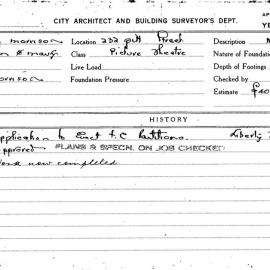 AP
CITY ARCHITECT AND BUILDING SURVEYOR'S DEPT.
YE
Morrison Location 232 Pitt Street Description
Class Picture Theatre Nature of Foundation
Live Load Depth of Footings
Morrison Foundation Pressure Checked by
Estimate
HISTORY
application to Erect F.C. Partitions. Liberty
approved PLANS & SPECN. ON JOB CHECKED
Work now completed